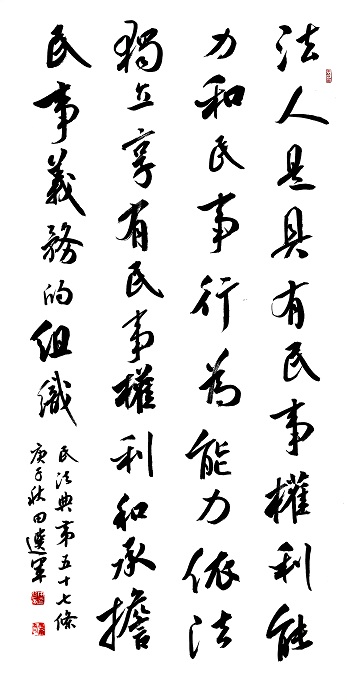 法人是具有民事權利能
力和民事行為能力依法
獨立享有民事權利和承擔
民事義務的組織
民法典第五十七條
庚子秋田運軍